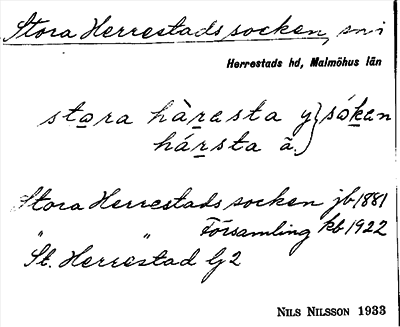 Stora Herrestads socken, sn i
Herrestads hd, Malmöhus län
sto̲ra hàr̲esta y } sók̲en
hár̲sta ä.
Stora Herrestads socken jb 1881
" " Församling kb 1922
St. Herrestad lj 2
NILS NILSSON 1933